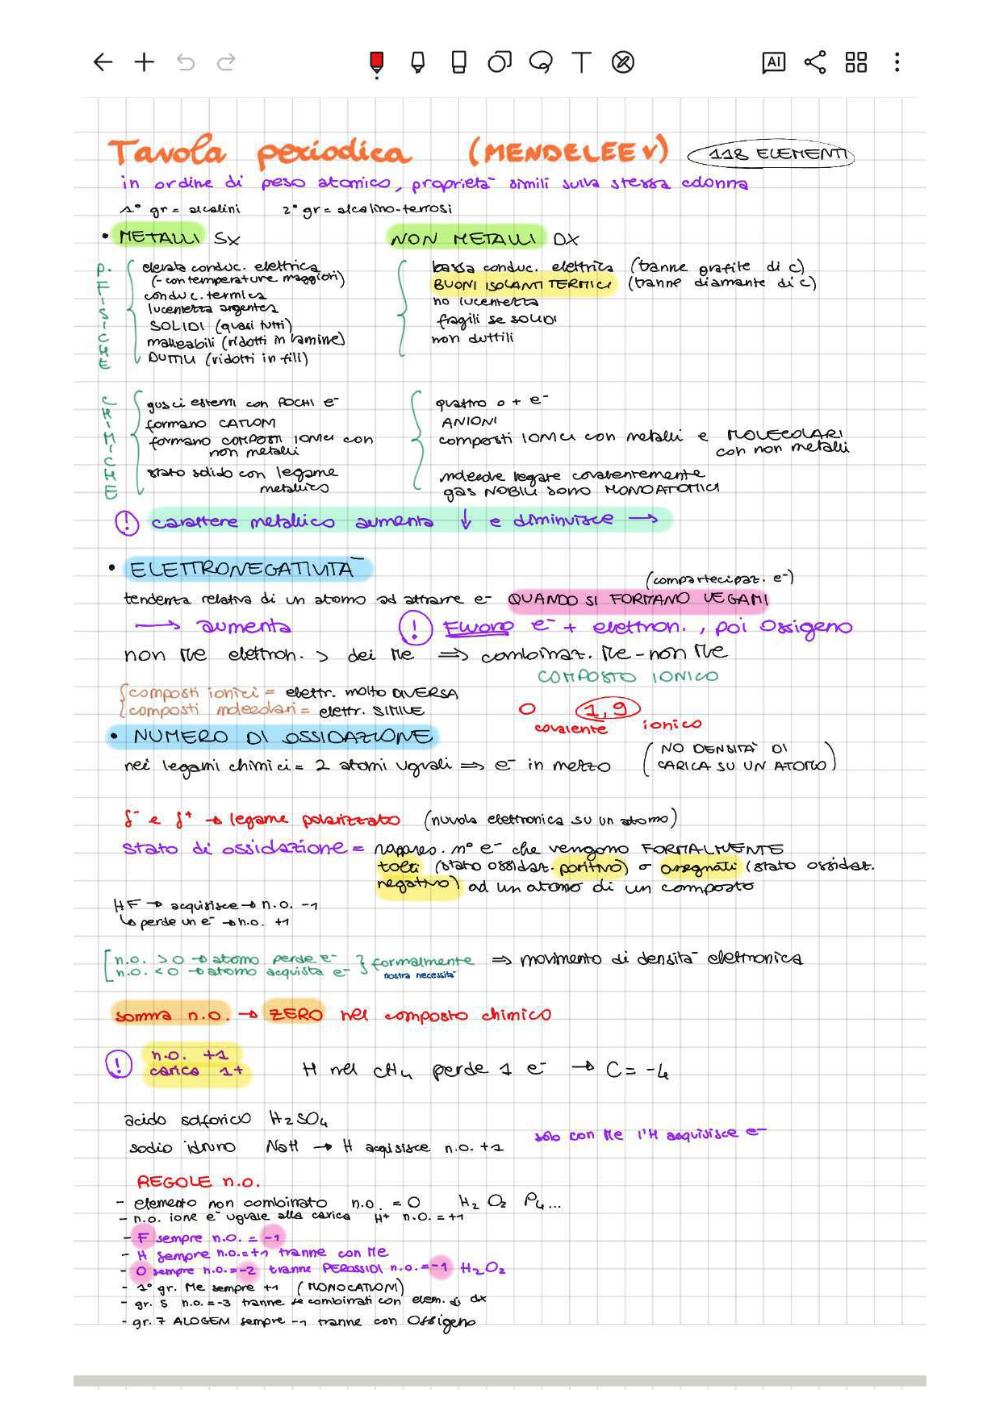 AI
Tavola periodica (MENDELEEV) 118 ELEMENTI
in ordine di peso atomico, proprietà simili sulla stessa colonna
1° gr = alcalini 2° gr = alcalino-terrosi
• METALLI SX NON METALLI DX
P. FISICHE
elevata conduc. elettrica
(- con temperature maggiori)
conduc. termica
lucentezza argentea
SOLIDI (quasi tutti)
malleabili (ridotti in lamine)
DUTTILI (ridotti in fili)
bassa conduc. elettrica (tranne grafite di C)
BUONI ISOLANTI TERMICI (tranne diamante di C)
no lucentezza
fragili se SOLIDI
non duttili
CHIMICHE
gusci esterni con POCHI e-
formano CATIONI
formano COMPOSTI IONICI con
non metalli
stato solido con legame
metallico
quattro o + e-
ANIONI
composti IONICI con metalli e MOLECOLARI
con non metalli
molecole legate covalentemente
gas NOBILI sono MONOATOMICI
! carattere metallico aumenta ↓ e diminuisce →
• ELETTRONEGATIVITÀ
(compartecipaz. e-)
tendenza relativa di un atomo ad attrarre e- QUANDO SI FORMANO LEGAMI
→ aumenta ! Fluoro e- + elettron., poi Ossigeno
non Me elettron. > dei Me ⇒ combinaz. Me - non Me
COMPOSTO IONICO
{composti ionici = elettr. molto DIVERSA
{composti molecolari = elettr. SIMILE
0 1,9
covalente ionico
• NUMERO DI OSSIDAZIONE
nei legami chimici = 2 atomi uguali ⇒ e- in mezzo (NO DENSITÀ DI
CARICA SU UN ATOMO)
δ- e δ+ → legame polarizzato (nuvola elettronica su un atomo)
stato di ossidazione = rappres. n° e- che vengono FORMALMENTE
tolti (stato ossidaz. positivo) o assegnati (stato ossidaz.
negativo) ad un atomo di un composto
HF → acquisisce → n.o. -1
↳ perde un e- → n.o. +1
[n.o. > 0 → atomo perde e- } formalmente ⇒ movimento di densità elettronica
n.o. < 0 → atomo acquista e- nostra necessità
somma n.o. → ZERO nel composto chimico
! n.o. +1
carica 1+
H nel CH4 perde 1 e- → C = -4
acido solforico H2SO4
sodio idruro NaH → H acquisisce n.o. +1 solo con Me l'H acquisisce e-
REGOLE n.o.
- elemento non combinato n.o. = 0 H2 O2 P4...
- n.o. ione è uguale alla carica H+ n.o. = +1
- F sempre n.o. = -1
- H sempre n.o. = +1 tranne con Me
- O sempre n.o. = -2 tranne PEROSSIDI n.o. = -1 H2O2
- 1° gr. Me sempre +1 (MONOCATIONI)
- gr. 5 n.o. = -3 tranne se combinati con elem. di dx
- gr. 7 ALOGENI sempre -1 tranne con Ossigeno